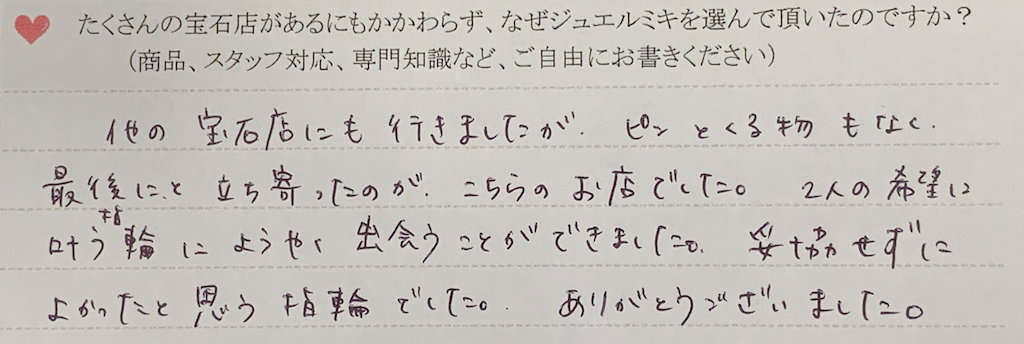 たくさんの宝石店があるにもかかわらず、なぜジュエルミキを選んで頂いたのですか?
(商品、スタッフ対応、専門知識など、ご自由にお書きください)
他の宝石店にも行きましたが、ピンとくる物もなく、
最後にと立ち寄ったのが、こちらのお店でした。2人の希望に
叶う指輪にようやく出会うことができました。妥協せずに
よかったと思う指輪でした。ありがとうございました。